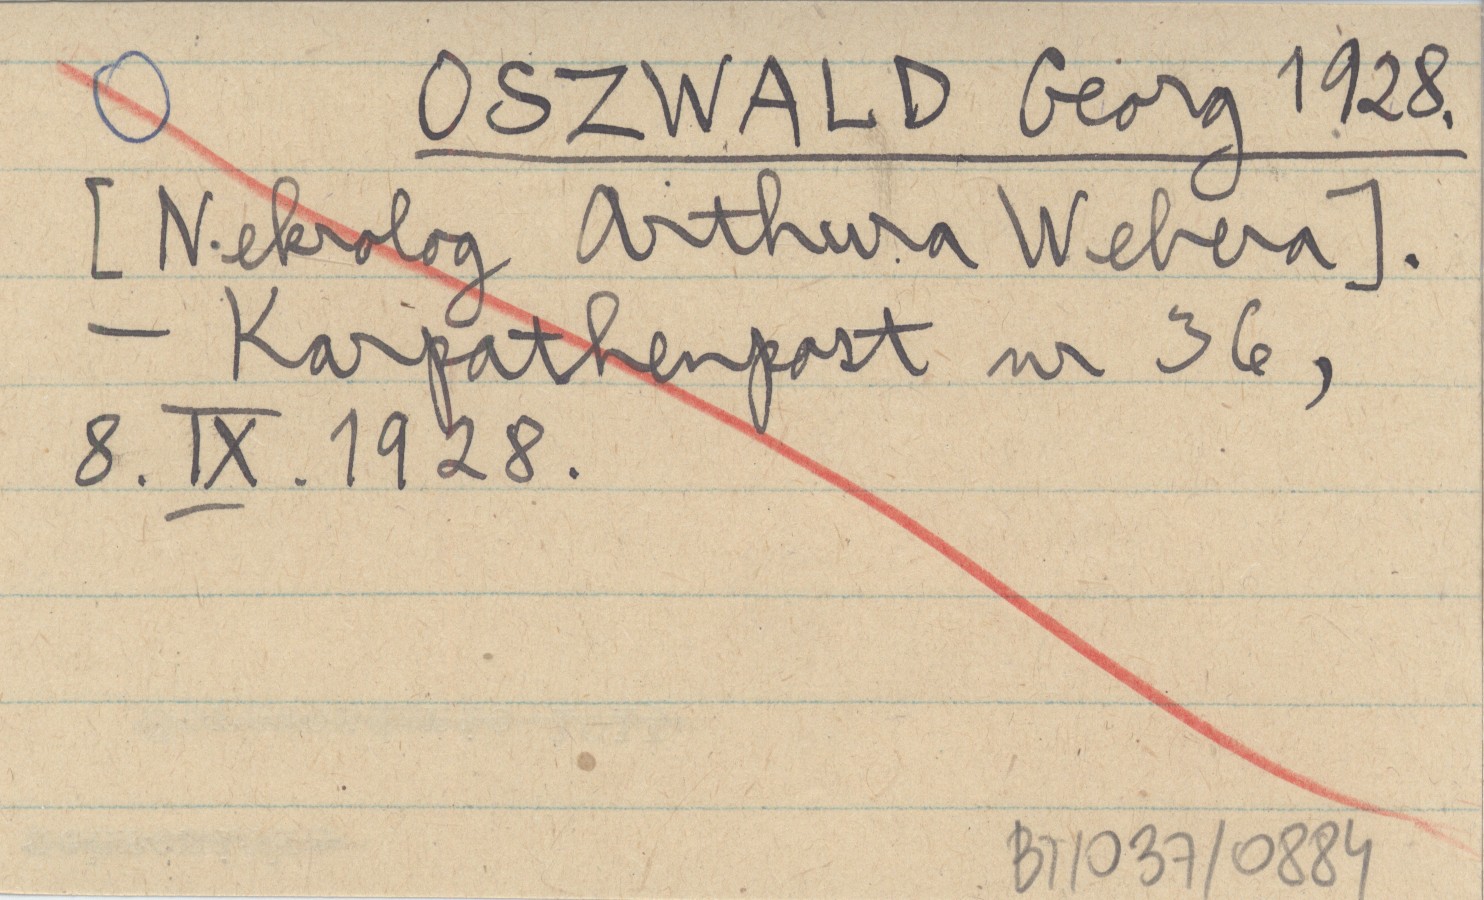 O OSZWALD Georg 1928.
[Nekrolog Arthura Webera].
— Karpathenpost nr 36,
8. IX. 1928.
BT/037/0884